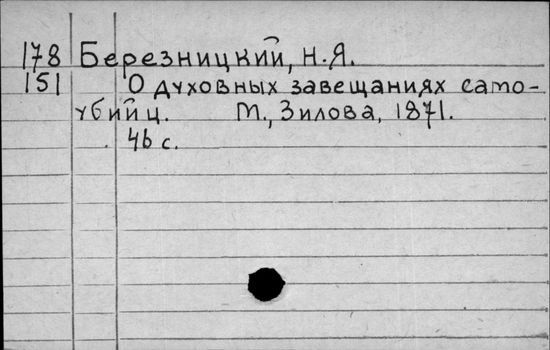 178 Березницкий, Н.Я.
151 О духовных завещаниях само-
убийц. М., Зилова, 1871.
46 с.